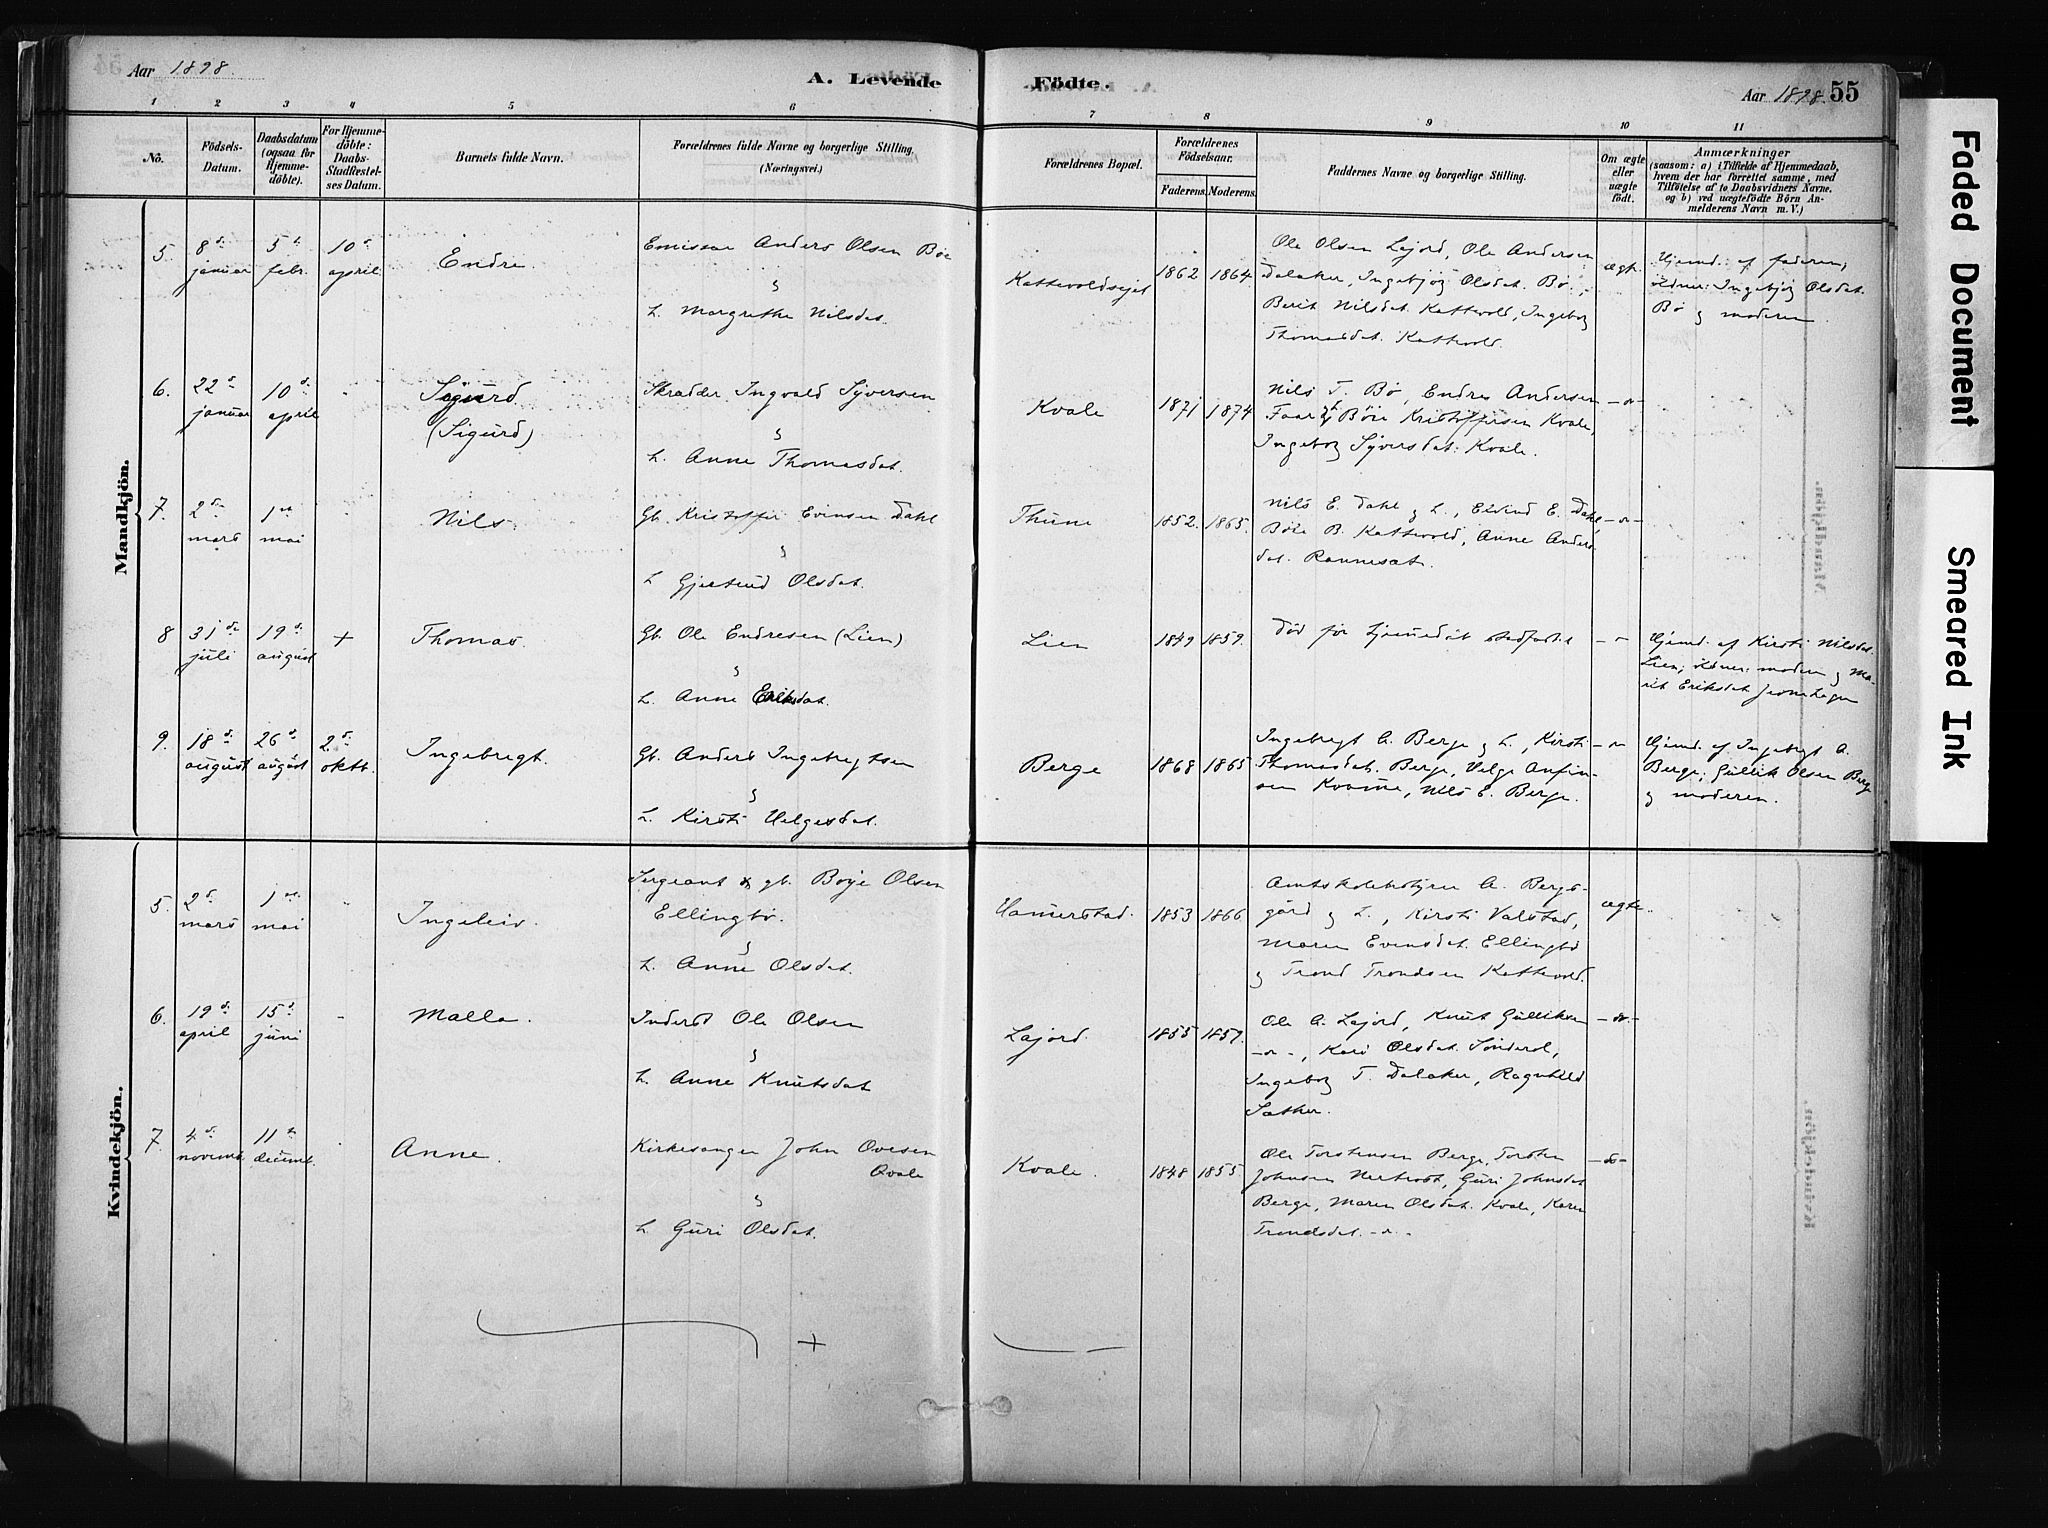 Aar 1898.
A. Levende
Födte.
Aar 1898. 55
1 2 3 4 5 6
7 8 9 10 11
No.
Födsels-
Datum.
Daabsdatum
(ogsaa for
Hjemme-
döbte).
For Hjemme-
döbte:
Daabs-
Stadfæstel-
ses Datum.
Barnets fulde Navn.
Forældrenes fulde Navne og borgerlige Stilling.
(Næringsvei.)
Forældrenes Bopæl.
Forældrenes
Födselsaar.
Faderens. Moderens.
Faddernes Navne og borgerlige Stilling.
Om ægte
eller
uægte
födt.
Anmærkninger
(saasom: a) i Tilfælde af Hjemmedaab,
hvem der har forrettet samme, med
Tilföielse af to Daabsvidners Navne,
og b) ved uægtefödte Börn An-
melderens Navn m. V.)
Mandkjön.
5.
8de
januar
5te
febr.
10de
april
Endre.
Emissær Anders Olsen Bøe
&
h. Margrethe Nilsdat.
Kattevoldsejet
1862
1864
Ole Olsen Lajord, Ole Andersen
Dalaker, Ingebjørg Olsdat. Bø,
Berit Nilsdat. Kattevold, Ingeborg
Thomasdat. Kattevold.
ægte
Hjemd. af faderen;
vidner: Ingebjørg Olsdat.
Bø og moderen.
6.
22de
januar
10de
april
"
Sigurd
(Sigurd)
Skrædder Ingvald Syversen
&
h. Anne Thomasdat.
Kvale
1871
1874
Nils T. Bø, Endre Andersen
Bøie Kristoffersen Kvale,
Ingeborg Syversdat. Kvale.
-"-
7.
2den
mars
1ste
mai
"
Nils.
Gb. Kristoffer Evensen Dahl
&
h Gjertrud Olsdat.
Thune
1852.
1865.
Nils E. Dahl og h., Eivind E. Dahl
Bøie B. Kattevold, Anne Anders-
dat. Rannesæt.
-"-
8
31te
juli
19de
august
+
Thomas.
Gb. Ole Endresen (Lien)
&
h. Anne Eriksdat.
Lien
1849
1859.
Død før hjemmedåb stadfæstet
- "
Hjemd. af Kirsti Nilsdat.
Lien; vidner: moderen og Ma-
rit Eriksdat.
9.
18de
august
26de
august
2den
oktb.
Ingebregt.
Gb. Anders Ingebregtsen
&
h. Kirsti Helgesdat.
Berge
1868
1865
Ingebregt A. Berge og h., Kirsti
Thomasdat. Berge, Helge Anfin-
sen Kvamme, Nils E. Berge.
- "
Hjemd. af Ingebregt A.
Berge; Gullik Olsen Berge
og moderen.
Kvindekjön.
5.
2den
mars
1ste
mai
"
Ingeleiv.
Sergeant & gb. Boye Olsen
Ellingbø.
&
h. Anne Olsdat.
Hamerstad.
1853
1866
Amtskolebestyrer A. Bergs-
gård og h., Kirsti Valstad,
Maren Evensdat. Ellingbø
og Trond Trondsen Kattevold.
ægte.
6.
19de
april
15de
juni
-
Malla.
Inderst Ole Olsen
&
h. Anne Knutsdat
Lajord.
1855
1857.
Ole A. Lajord, Knut Gulliksen
-"-, Kari Olsdat. Sønderol,
Ingeborg T. Dalaker, Ragnhild
Sæther.
-"-
7.
4de
novemb.
11te
decemb.
Anne.
Kirkesanger John Ovesen
Qvale
&
h Guri Olsdat.
Kvale.
1848
1855
Ole Torstensen Berge, Torsten
Johnsen, Guri Johnsdat.
Berge, Maren Olsdat. Kvale, Karen
Trondsdat. -"-
-"-
Faded Document
Smeared Ink